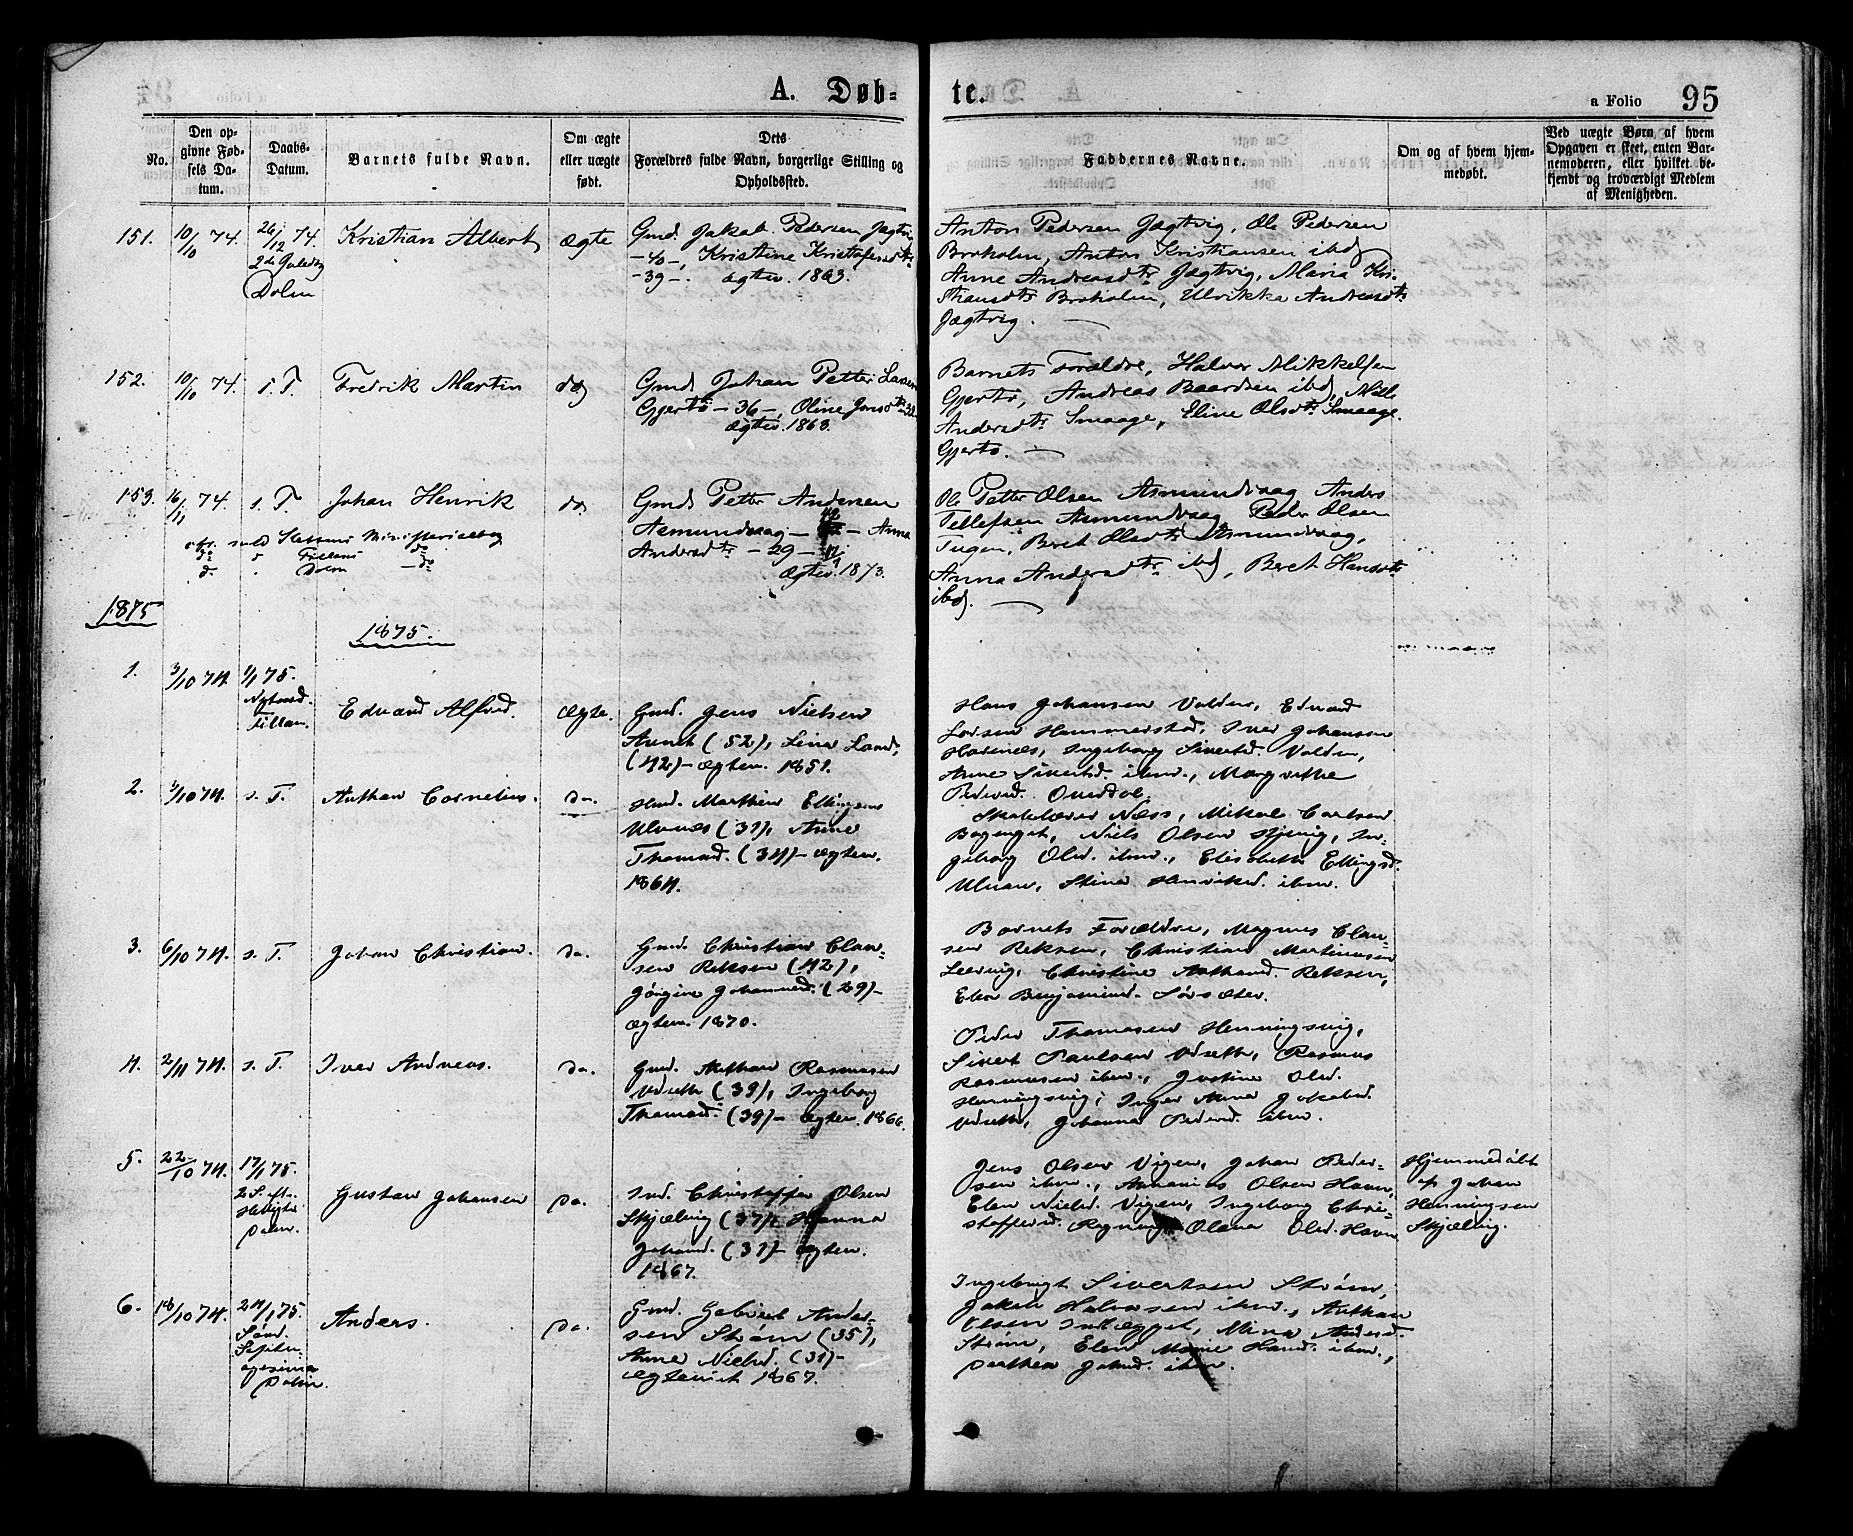 A. Døb-
te.
a Folio 95
No.
Den op-
givne Fød-
sels Da-
tum.
Daabs-
Datum.
Barnets fulde Navn.
Om ægte
eller uægte
født.
Dets
Forældres fulde Navn, borgerlige Stilling og
Opholdssted.
Faddernes Navne.
Om og af hvem hjem-
medøbt.
Ved uægte Børn af hvem
Opgaven er skeet, enten Bar-
nemoderen, eller hvilket be-
kjendt og troværdigt Medlem
af Menigheden.
151.
10/10 74.
26/12 74.
2den Juledag
Dolm
Kristian Albert
ægte
Gmd. Jakob Pedersen Jægtvig
-40-, Kristine Kristofersdtr
-39-. ægtev. 1863.
Anton Pedersen Jægtvig, Ole Pedersen
Broholm, Anton Kristiansen ibd
Anne Andreasdtr Jægtvig, Maria Kri-
stiansdtr Broholm, Ulrikke Andreasdtr
Jægtvig.
152.
10/10 74.
s. T.
Fredrik Martin
do
Gmd Johan Petter Larsen
Gjertø -36-, Oline Jonsdtr
ægtev. 1863.
Barnets Forældre, Halvor Mikkelsen
Gjertø, Andreas Baardsen ibd,
Andersdtr Smaage, Eline Olsdtr Smaage
Gjertø.
153.
16/11 74.
s. T.
Johan Henrik
do
Gmd Petter Andersen
Asmundvaag - 42 - Anna
Andersdtr -29-
Ægtev. 1873.
Ole Petter Olsen Asmundvaag Anders
Tellefsen Asmundvaag Peder Olsen
Tugen, Beret Olsdtr Asmundvaag,
Anna Andersdtr ibd, Beret Hansdtr
ibd.
Ministerialbog
Fillans do
Dolm do
1875
1875.
1.
3/10 74.
1/1 75.
Nytaarsd.
Fillan.
Edvard Alfred.
Ægte.
Gmd. Jens Nielsen
Aunet (52), Lina Larsd.
(42)- Ægtev. 1851.
Hans Johansen Valden, Edvard
Larsen Hammerstad, Iver Johansen
Havnæs, Ingeborg Sivertsd. Valden,
Anne Sivertsd. ibm., Margrethe
Pedersd.
2.
3/10 74.
s. T.
Anthon Cornelius.
do.
Hmd. Marthin Ellingsen
Ulvnæs (31), Anne
Thomasd. (34)- Ægtev.
1864.
Skolelærer Næss, Mikal Carlsen
Bogenget, Niels Olsen Hjemig, In-
geborg Olsd. ibm., Elisabeth Ellingsd.
Ulvan, Stina Henriksd. ibm.
3.
6/10 74.
s. T.
Johan Christian.
do.
Gmd. Christian Clau-
sen Reksen (42),
Jørgine Johannesd. (29)-
Ægtev. 1870.
Barnets Forældre, Magnus Clau-
sen Reksen, Christian Martinusen
Leervig, Christine Anthonsd. Reksen,
Elen Benjaminsd. Sørsæter.
4.
2/11 74.
s. T.
Iver Andreas.
do.
Gmd. Anthon Rasmusen
Udseth (39), Ingeborg
Thomasd. (39)- Ægtev. 1866.
Peder Thomasen Henningsvig,
Sivert Paulsen Udseth, Rasmus
Rasmusen ibm., Justine Olsd.
Henningsvig, Inger Anna Jakobsd.
Udseth, Johanna Pedersd. ibm.
5.
22/10 74.
17/1 75.
2 S. eft.
Dolm.
Gustav Johansen
do.
Ind. Christoffer Olsen
Skjælvig (37), Hanna
Johansd. (37)- Ægtev.
1867.
Jens Olsen Vigen, Johan Peder-
sen ibm., Ananias Olsen Havn,
Elen Nielsd. Vigen, Ingeborg Chri-
stoffersd. Olava Olsd. Havn.
Hjemmedøbt
af Johan
Henningsen
Skjælvig.
6.
18/10 74.
24/1 75.
Sønd.
Septu-
agesima
Dolm.
Anders.
do.
Gmd. Gabriel Ander-
sen Strøm (35),
Anne Nielsd. (31)-
Ægteviet 1867.
Ingebrigt Sivertsen Strøm,
Jakob Halvorsen ibm., Anthon
Olsen Mina Andersd.
Strøm, Elen Marie Hansd. ibm.,
Dorthea Johnsd. ibm.